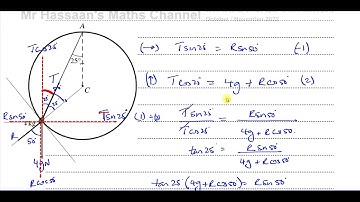 Mr Hassaan's Maths Channel
October / November 2022
A
25°
C
Tcos25
T
Tsin25
Rsin50
R
50
4gN
Rcos50
(→) Tsin25 = Rsin50 (1)
(↑) Tcos25 = 4g + Rcos50 (2)
(1) ÷ (2) Tsin25 / Tcos25 = Rsin50 / 4g + Rcos50
tan25 = Rsin50 / 4g + Rcos50
tan25 (4g + Rcos50) = Rsin50